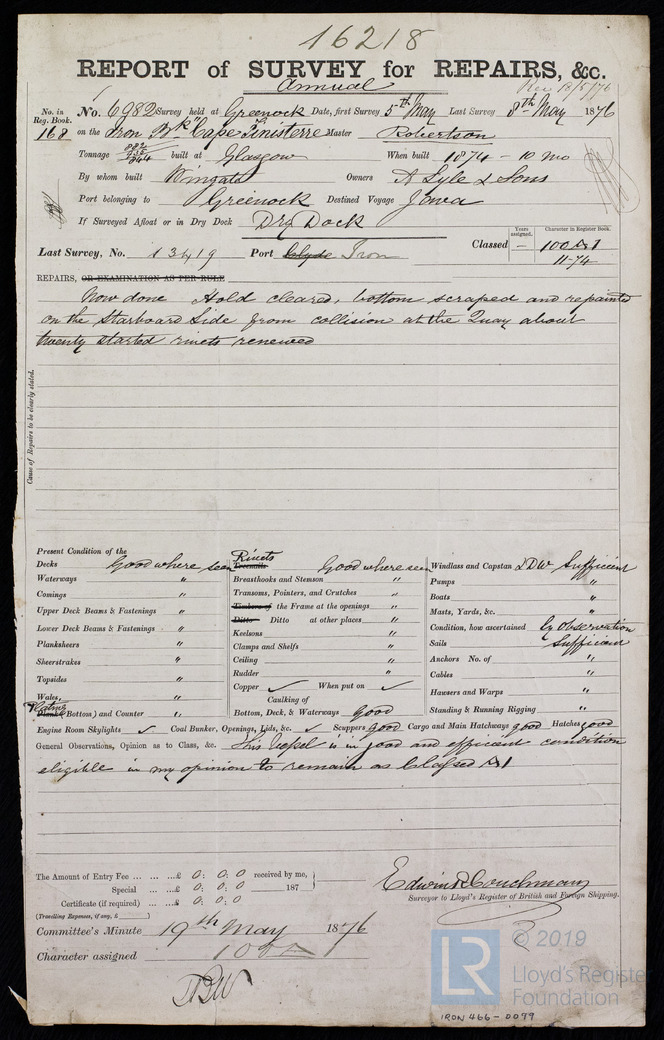 16218
REPORT of SURVEY for REPAIRS, &c.
Annual
Rec 18/5/76
No. in Reg. Book. 168
No. 6982 Survey held at Greenock Date, first Survey 5th May Last Survey 8th May 1876
on the Iron Bk "Cape Finisterre" Master Robertson
Tonnage 844 built at Glasgow When built 1874 - 10 mo
By whom built Wingate Owners A Lyle & Sons
Port belonging to Greenock Destined Voyage Iowa
If Surveyed Afloat or in Dry Dock Dry Dock
Years assigned. Character in Register Book.
Last Survey, No. 13419 Port Clyde Iron Classed — 100 A 1
11-74
REPAIRS, OR EXAMINATION AS PER RULE
Now done Hold cleared, bottom scraped and repainted
on the Starboard Side from collision at the Quay about
twenty started rivets renewed
Cause of Repairs to be clearly stated.
Present Condition of the
Decks Good where seen
Waterways "
Comings "
Upper Deck Beams & Fastenings "
Lower Deck Beams & Fastenings "
Planksheers "
Sheerstrakes "
Topsides "
Wales, "
Plating Plank (Bottom) and Counter "
Rivets Treenails Good where seen
Breasthooks and Stemson "
Transoms, Pointers, and Crutches "
Timbers of the Frame at the openings "
Ditto Ditto at other places "
Keelsons "
Clamps and Shelfs "
Ceiling "
Rudder "
Copper ✓ When put on ✓
Caulking of
Bottom, Deck, & Waterways Good
Windlass and Capstan LDW Sufficient
Pumps "
Boats "
Masts, Yards, &c. "
Condition, how ascertained by observation
Sails Sufficient
Anchors No. of "
Cables "
Hawsers and Warps "
Standing & Running Rigging "
Engine Room Skylights ✓ Coal Bunker, Openings, Lids, &c. ✓ Scuppers good Cargo and Main Hatchways good Hatches good
General Observations, Opinion as to Class, &c. This vessel is in good and efficient condition
eligible in my opinion to remain as Classed A1
The Amount of Entry Fee ... ... ...£ 0 : 0 : 0 received by me,
Special ... ...£ 0 : 0 : 0 187
Certificate (if required) ... ...£ 0 : 0 : 0
(Travelling Expenses, if any, £ )
Edwin R Couchman
Surveyor to Lloyd's Register of British and Foreign Shipping.
Committee's Minute 19th May 1876
Character assigned 100 A 1
LR
© 2019
Lloyd's Register
Foundation
IRON 466-0099